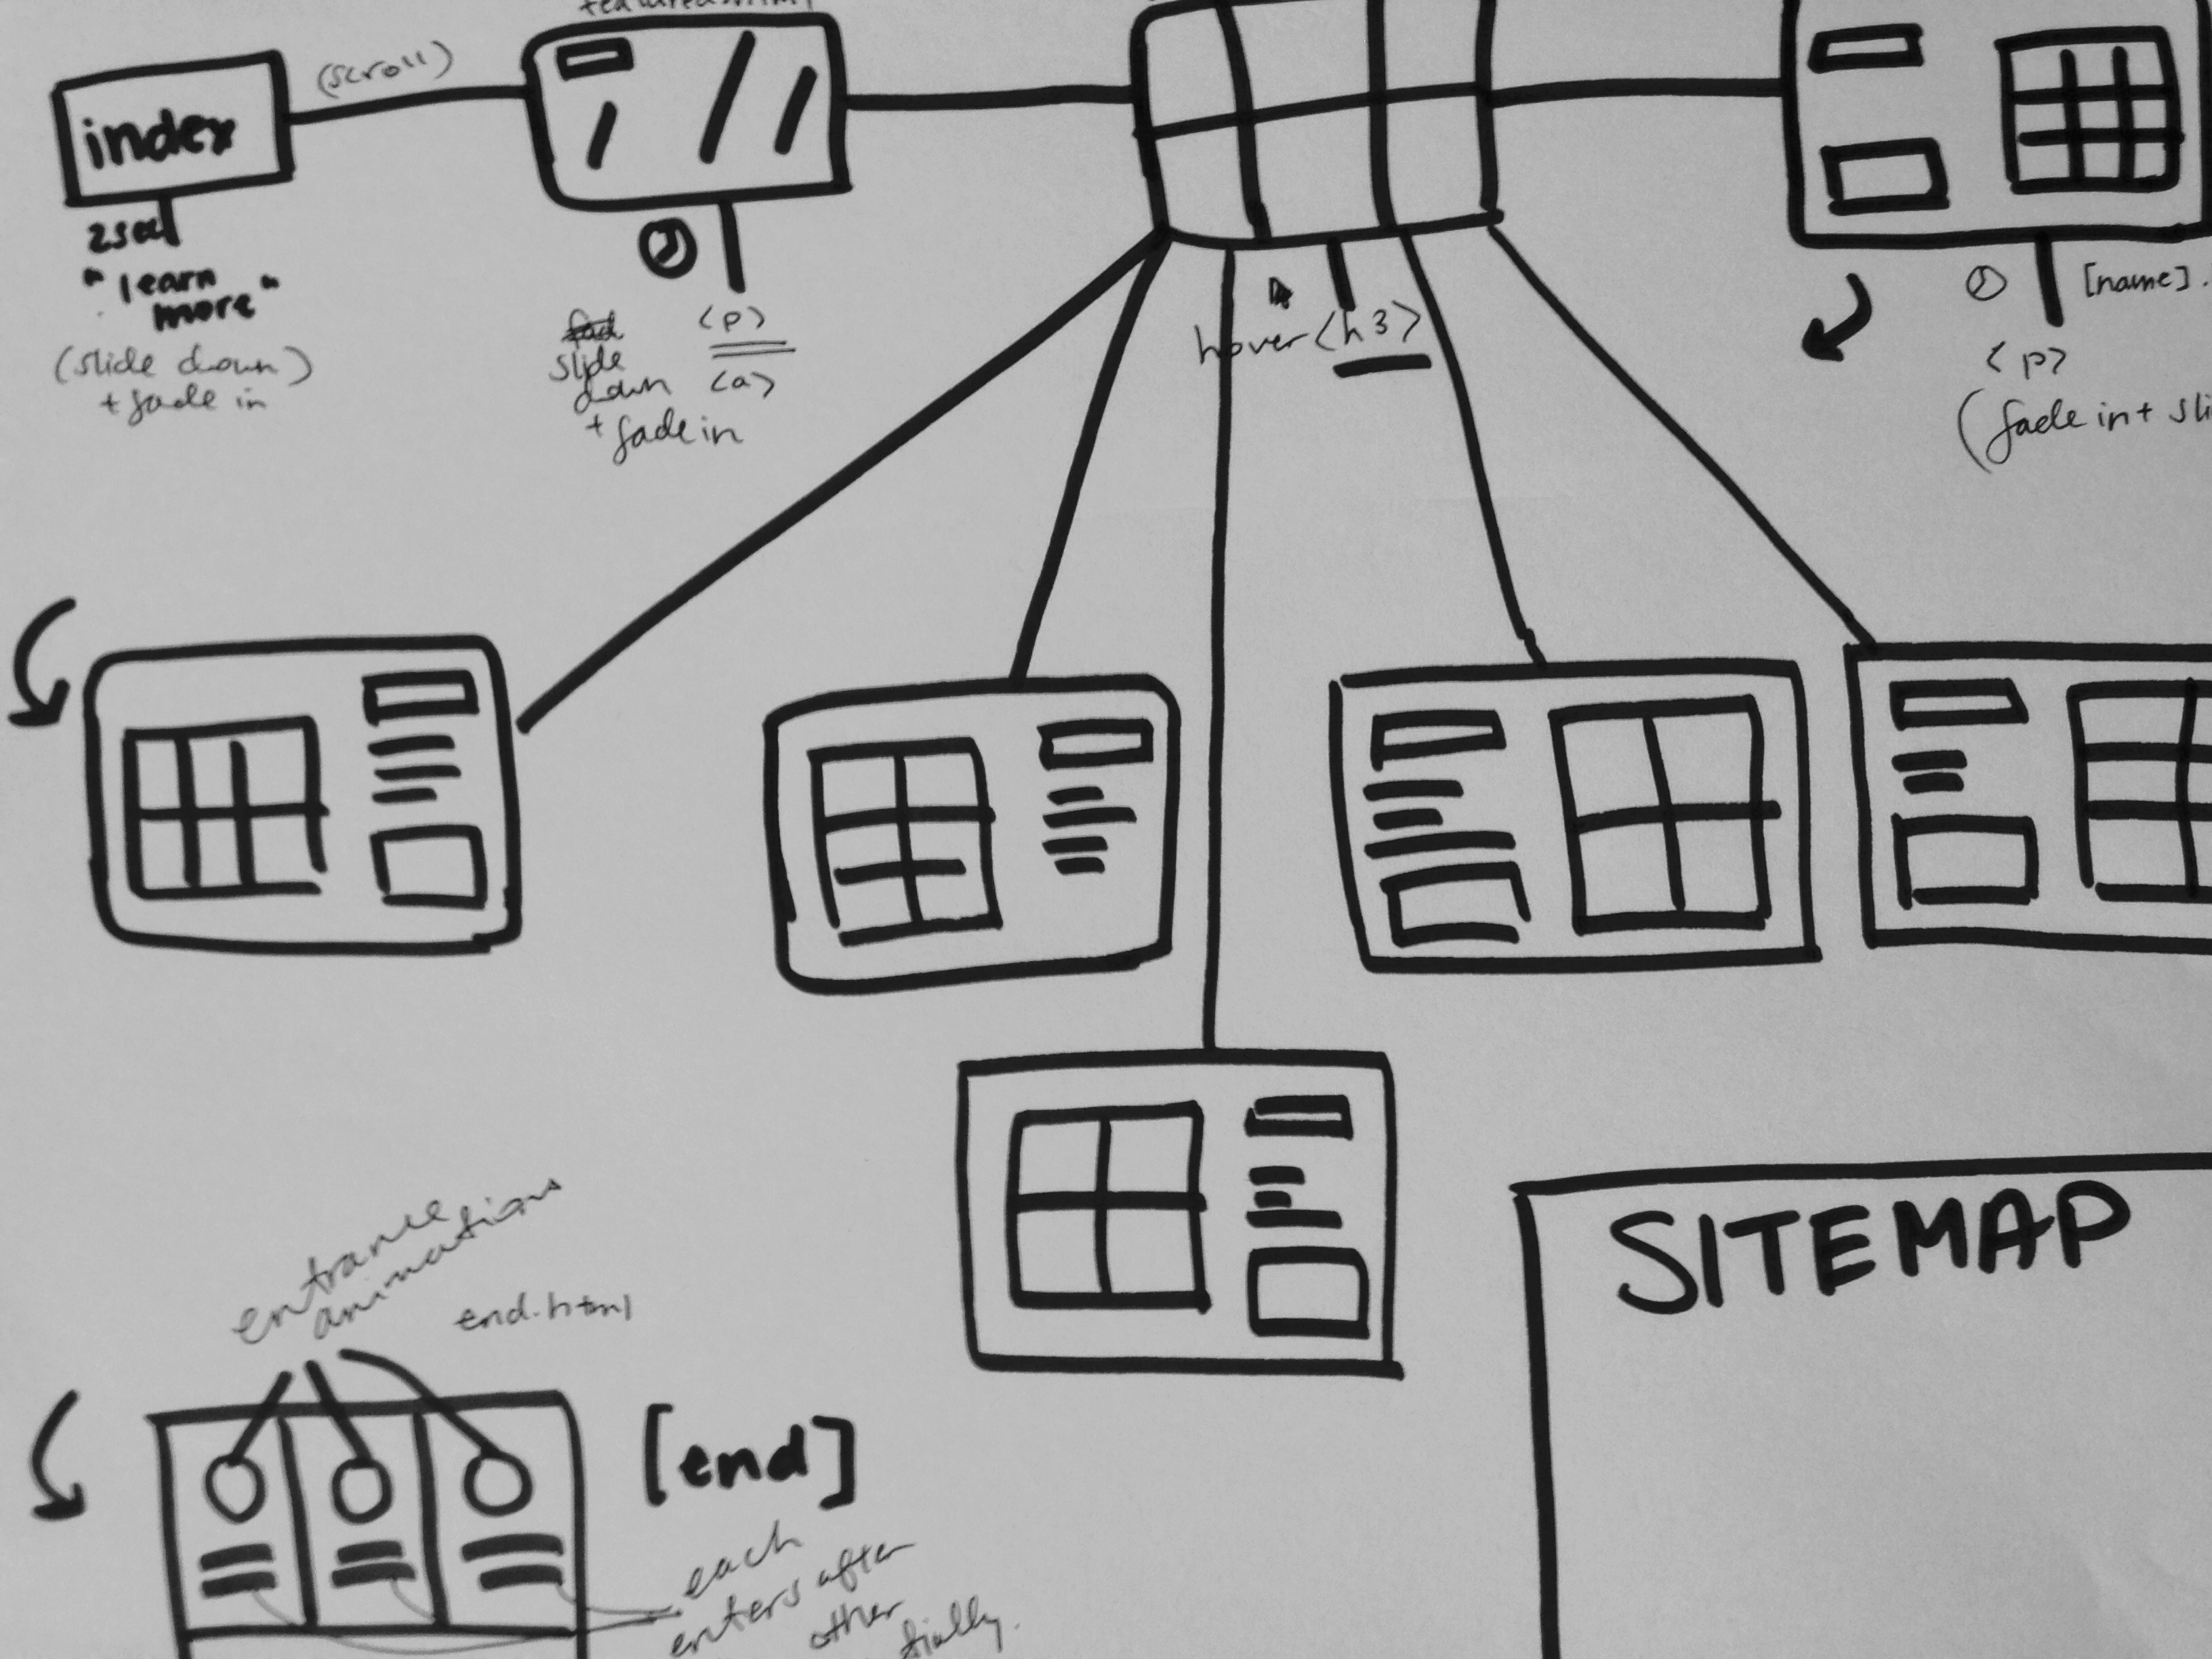 (scroll)
index
2sec
"learn
more"
(slide down)
+ fade in
slide
down
+ fade in
<p>
<a>
hover <h3>
[name].
<p>
(fade in +
entrance
animations
end.html
[end]
each
enters after
other
SITEMAP